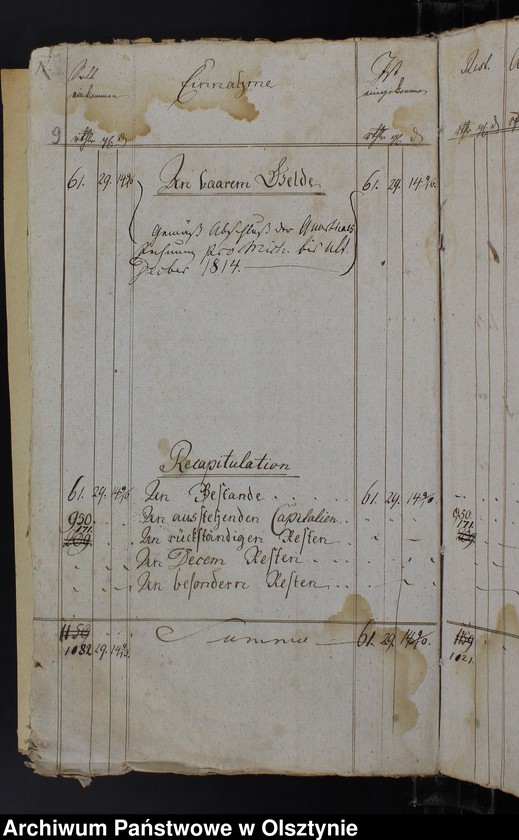 Soll Einnahme Ist Rest.
einkommen eingekommen
9 rthr gl. d rthr gl. d rthr gl. d
61. 29. 14 An baarem Gelde 61. 29. 14
Gemäß Abschluß der Quartals
Rechnung pro Mich. bis ult.
Dcober 1814.
Recapitulation
61. 29. 14 An Bestande 61. 29. 14
950. An ausstehenden Capitalien 950.
171. An rückständigen Resten 171.
An Decem Resten
An besondern Resten
1150 Summa 61. 29. 14
1082 29. 14
Archiwum Państwowe w Olsztynie